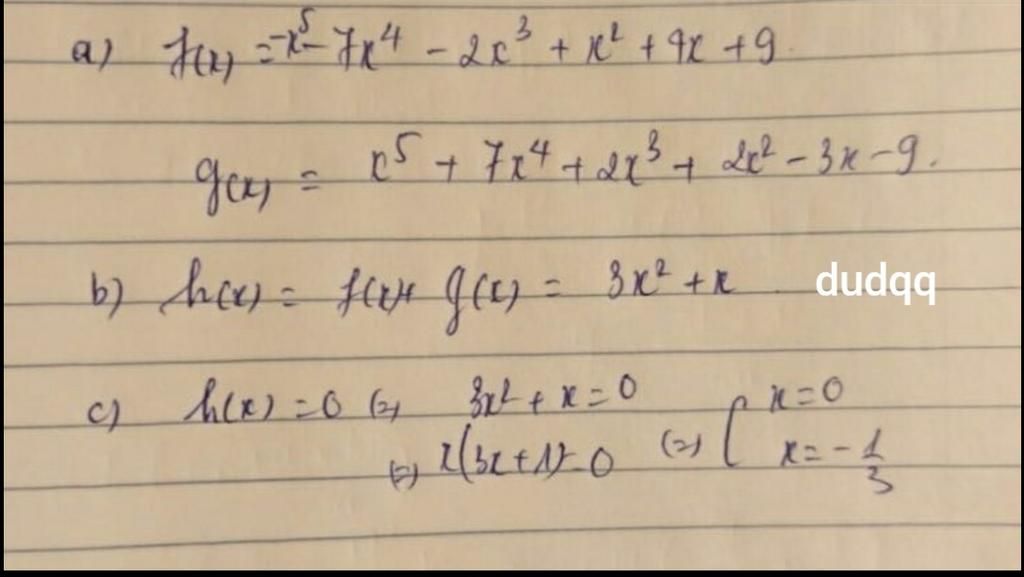 a) f(x) = -x⁵ - 7x⁴ - 2x³ + x² + 4x + 9.
g(x) = x⁵ + 7x⁴ + 2x³ + 2x² - 3x - 9.
b) h(x) = f(x) + g(x) = 3x² + x. dudqq
c) h(x) = 0 (=) 3x² + x = 0
(=) x(3x + 1) = 0 (=) [ x = 0
x = -1/3